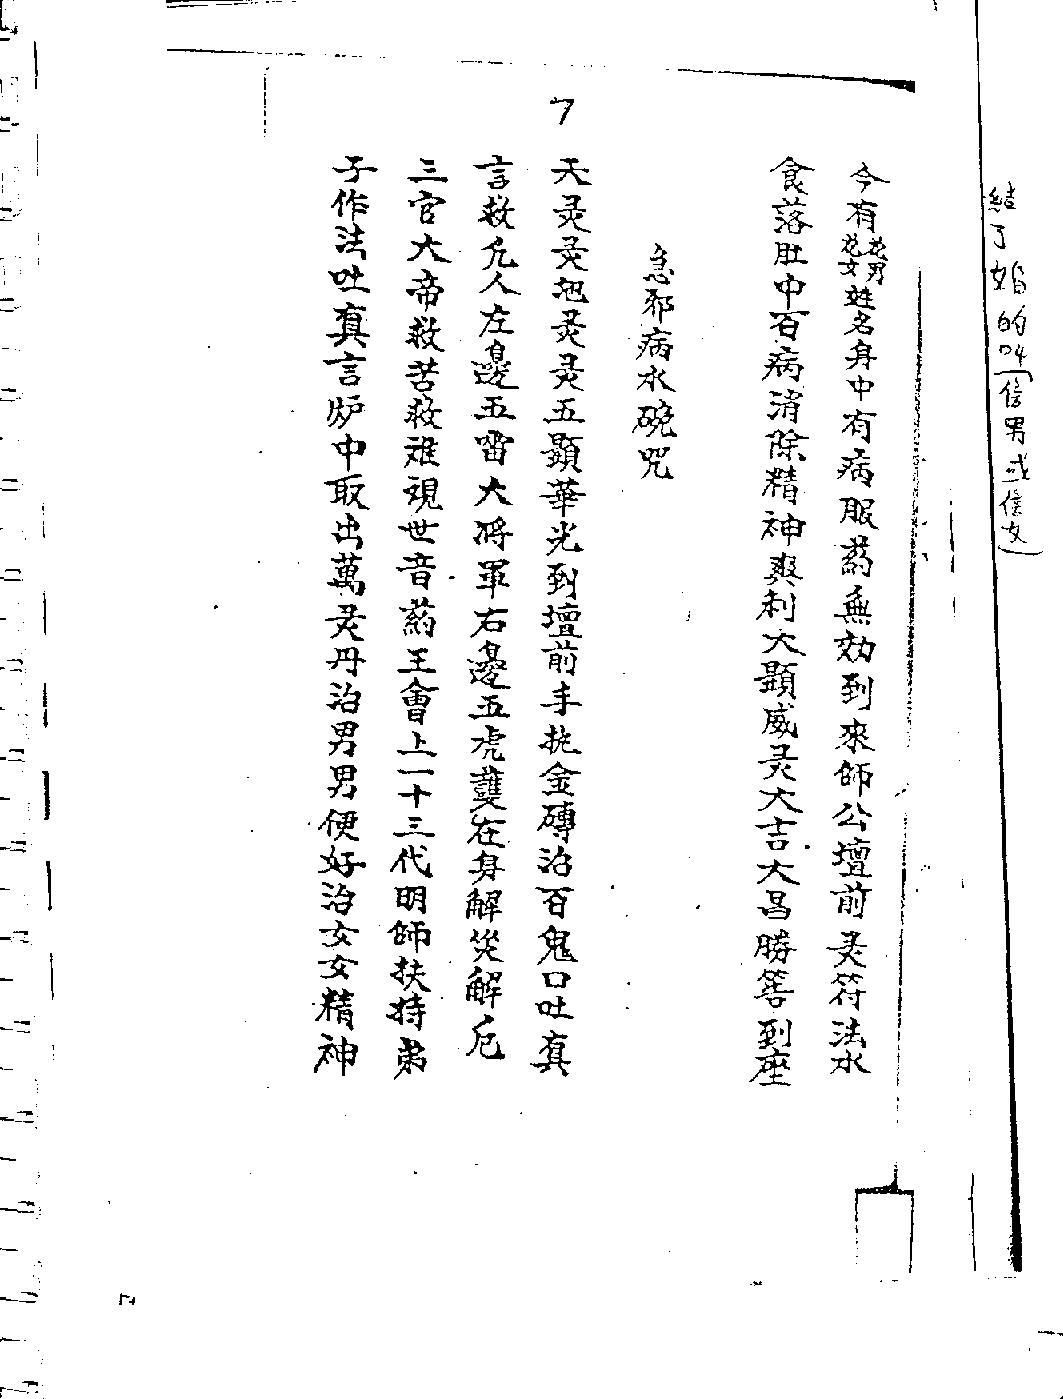 結了婚的叫(信男或信女)
今有花男花女姓名身中有病服葯無効到來師公壇前灵符法水
食落肚中百病消除精神爽利大顯威灵大吉大昌勝筶到座
急邪病水碗咒
7
天灵灵地灵灵五顯華光到壇前手扡金磚治百鬼口吐真
言救凢人左邊五雷大将軍右邊五虎䕶在身解災解厄
三官大帝救苦救难覌世音葯王會上一十三代明師扶持弟
子作法吐真言炉中取出萬灵丹治男男便好治女女精神